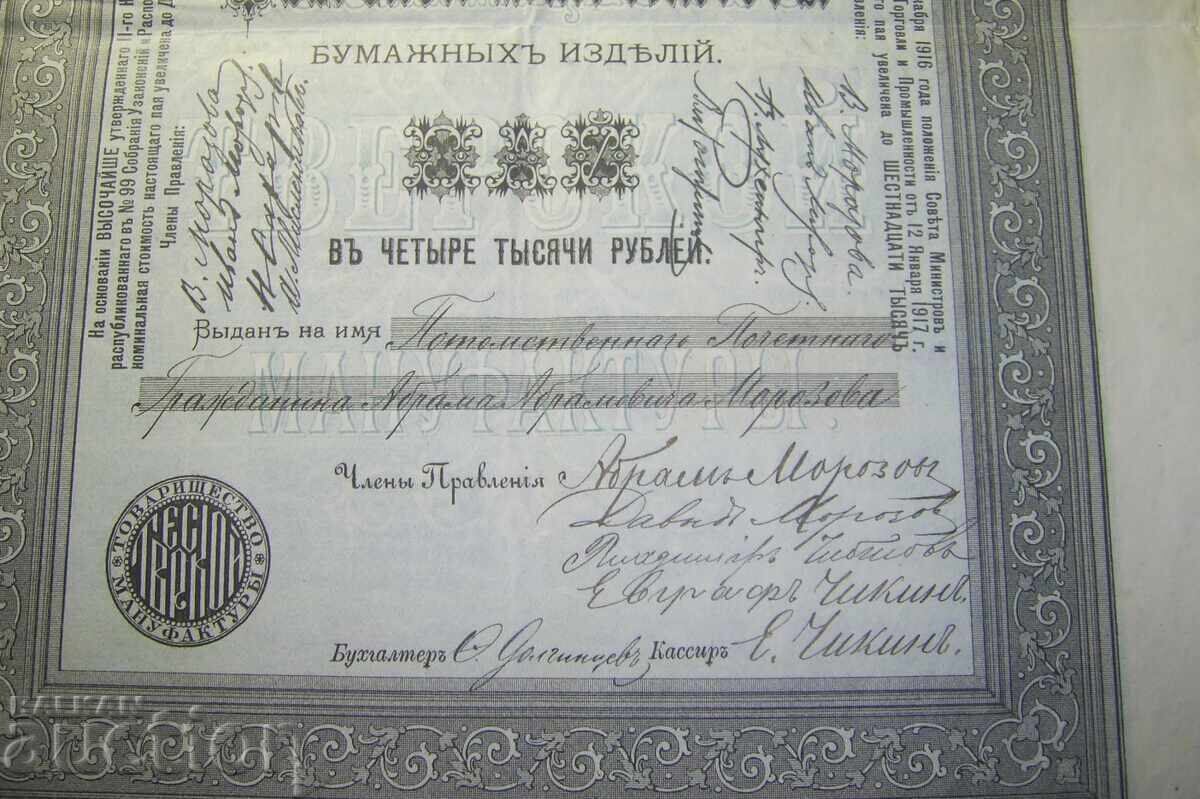 БУМАЖНЫХЪ ИЗДѢЛІЙ.
ПАЙ
ВЪ ЧЕТЫРЕ ТЫСЯЧИ РУБЛЕЙ.
Выданъ на имя Потомственнаго Почетнаго
Гражданина Абрама Абрамовича Морозова
ТВЕРСКОЙ
МАНУФАКТУРЫ.
Члены Правленія Абрамъ Морозовъ
Давидъ Морозовъ
Чибисовъ
Евграфъ Чикинъ.
Бухгалтеръ Кассиръ Е. Чикинъ.
ТОВАРИЩЕСТВО
МАНУФАКТУРЫ
На основаніи ВЫСОЧАЙШЕ утвержденнаго 11-го
распубликованнаго въ № 99 Собранія Узаконеній и Распо
номинальная стоимость настоящаго пая увеличена до
Члены Правленія:
В. Морозова
Иванъ Морозовъ
1916 года положенія Совѣта Министровъ и
Торговли и Промышленности отъ 12 Января 1917 г.
пая увеличена до ШЕСТНАДЦАТИ ТЫСЯЧЪ
В. Морозова.
BALKAN
auction